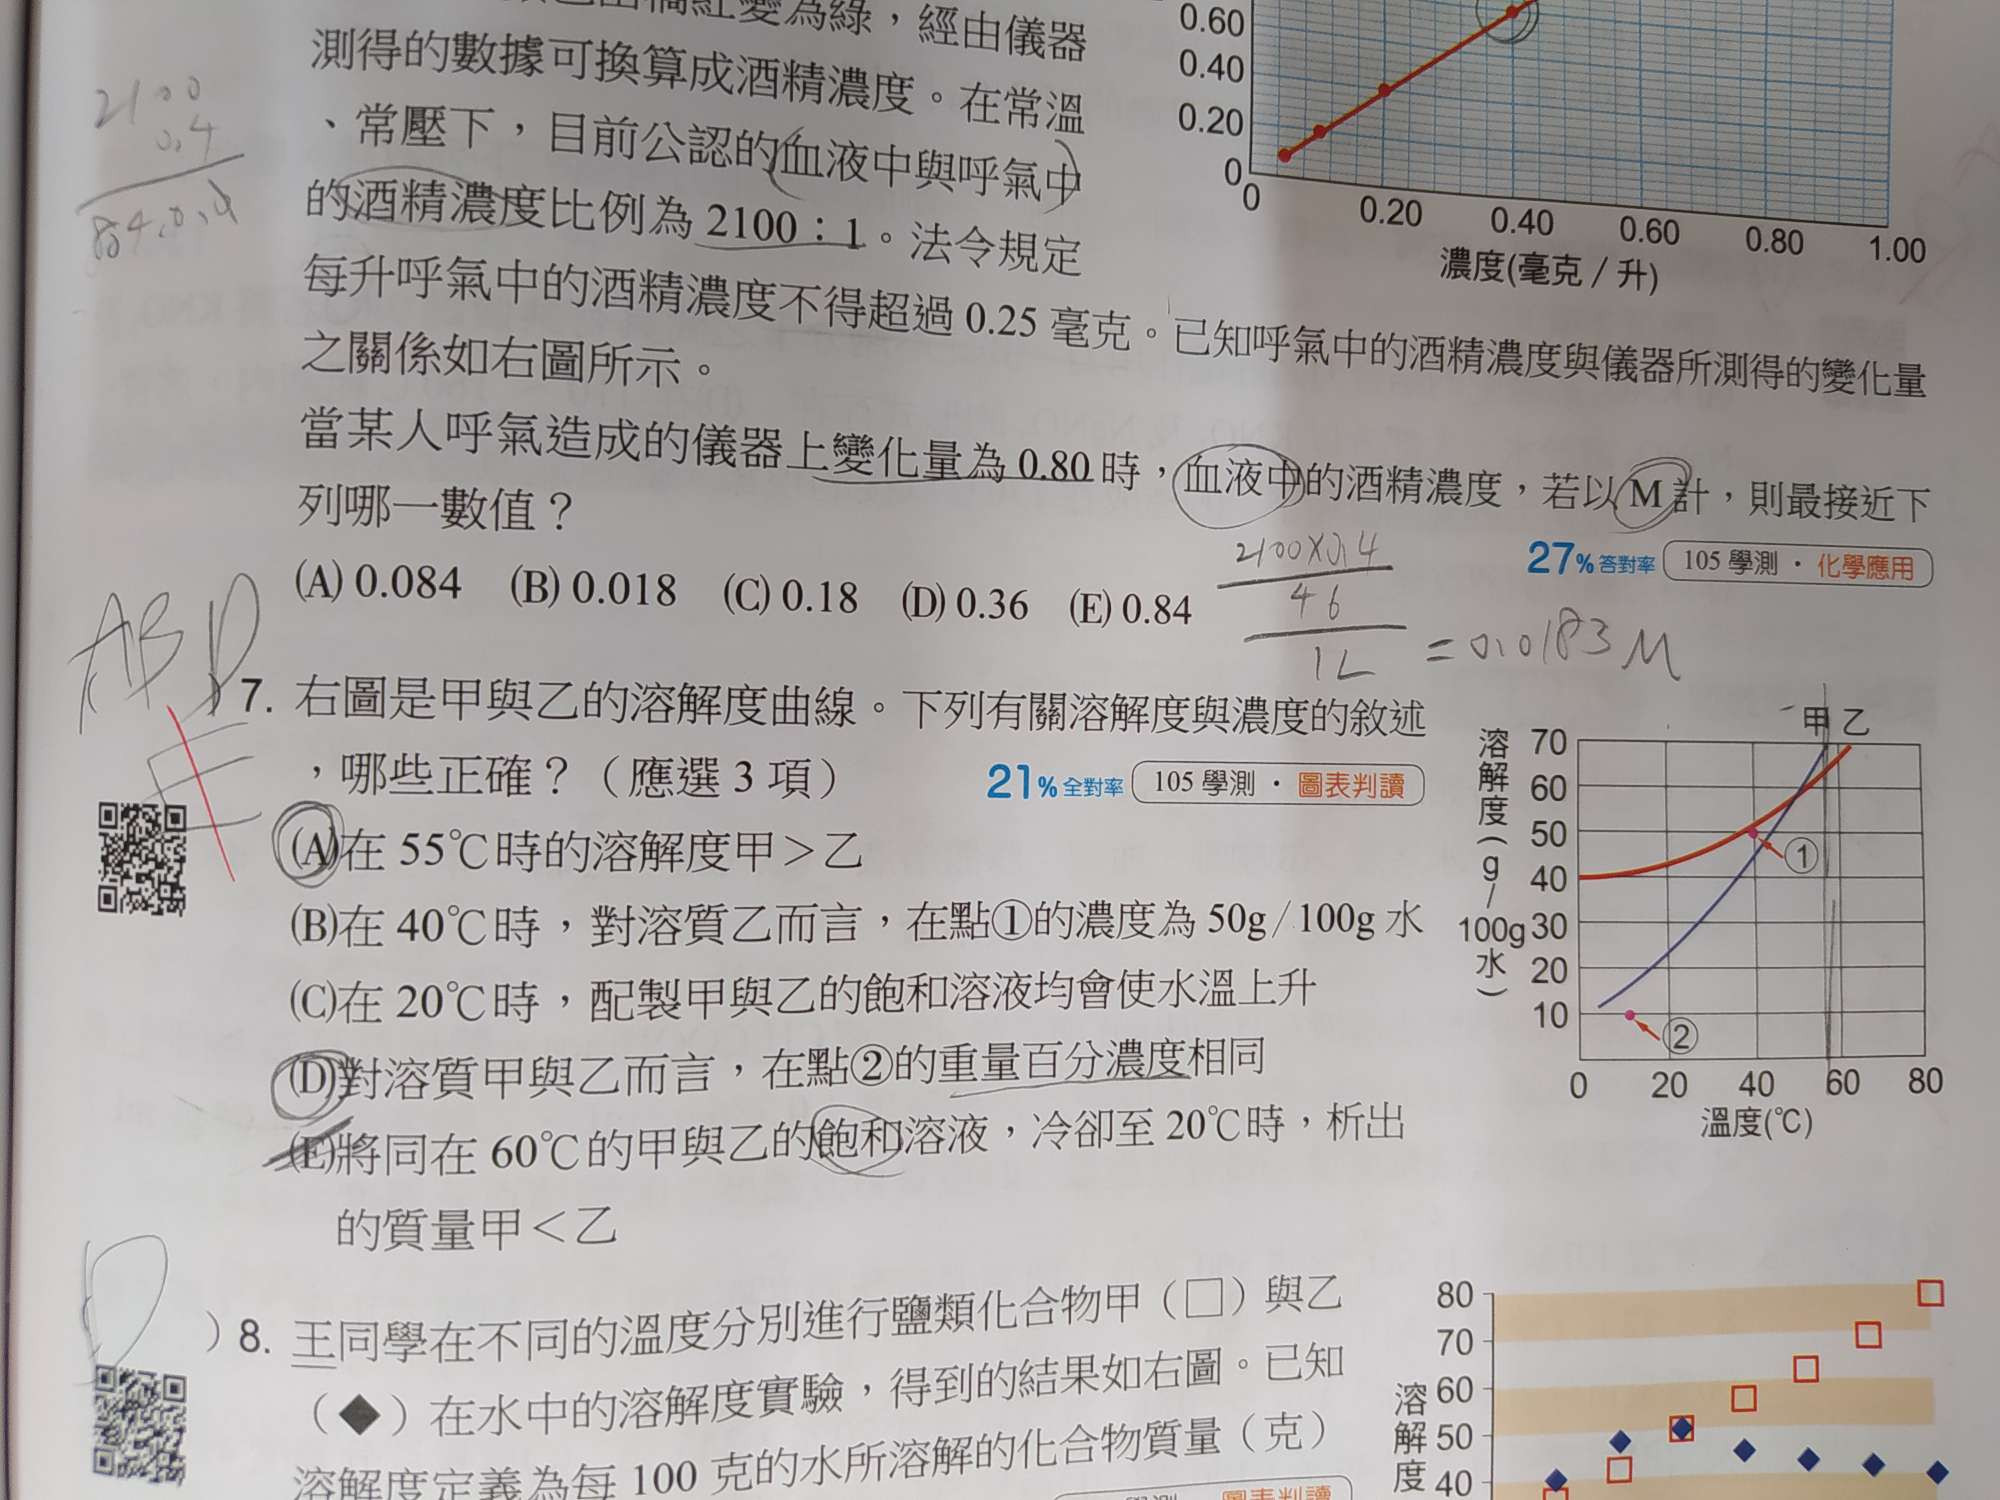 變為綠，經由儀器
測得的數據可換算成酒精濃度。在常溫
、常壓下，目前公認的血液中與呼氣中
的酒精濃度比例為 2100：1。法令規定
每升呼氣中的酒精濃度不得超過 0.25 毫克。已知呼氣中的酒精濃度與儀器所測得的變化量
之關係如右圖所示。
當某人呼氣造成的儀器上變化量為 0.80 時，血液中的酒精濃度，若以 M 計，則最接近下
列哪一數值？
27%答對率 105 學測・化學應用
(A) 0.084 (B) 0.018 (C) 0.18 (D) 0.36 (E) 0.84
2100
0.4
2100×0.4
46
1L
= 0.0183 M
0.60
0.40
0.20
0
0 0.20 0.40 0.60 0.80 1.00
濃度(毫克／升)
ABD
E
7. 右圖是甲與乙的溶解度曲線。下列有關溶解度與濃度的敘述
，哪些正確？（應選 3 項）
21%全對率 105 學測・圖表判讀
(A)在 55℃時的溶解度甲＞乙
(B)在 40℃時，對溶質乙而言，在點①的濃度為 50g/100g 水
(C)在 20℃時，配製甲與乙的飽和溶液均會使水溫上升
(D)對溶質甲與乙而言，在點②的重量百分濃度相同
(E)將同在 60℃的甲與乙的飽和溶液，冷卻至 20℃時，析出
的質量甲＜乙
甲 乙
溶解度(g/100g水)
70
60
50
40
30
20
10
①
②
0 20 40 60 80
溫度(℃)
D
)8. 王同學在不同的溫度分別進行鹽類化合物甲（□）與乙
（◆）在水中的溶解度實驗，得到的結果如右圖。已知
溶解度定義為每 100 克的水所溶解的化合物質量（克）
圖表判讀
溶解度
80
70
60
50
40